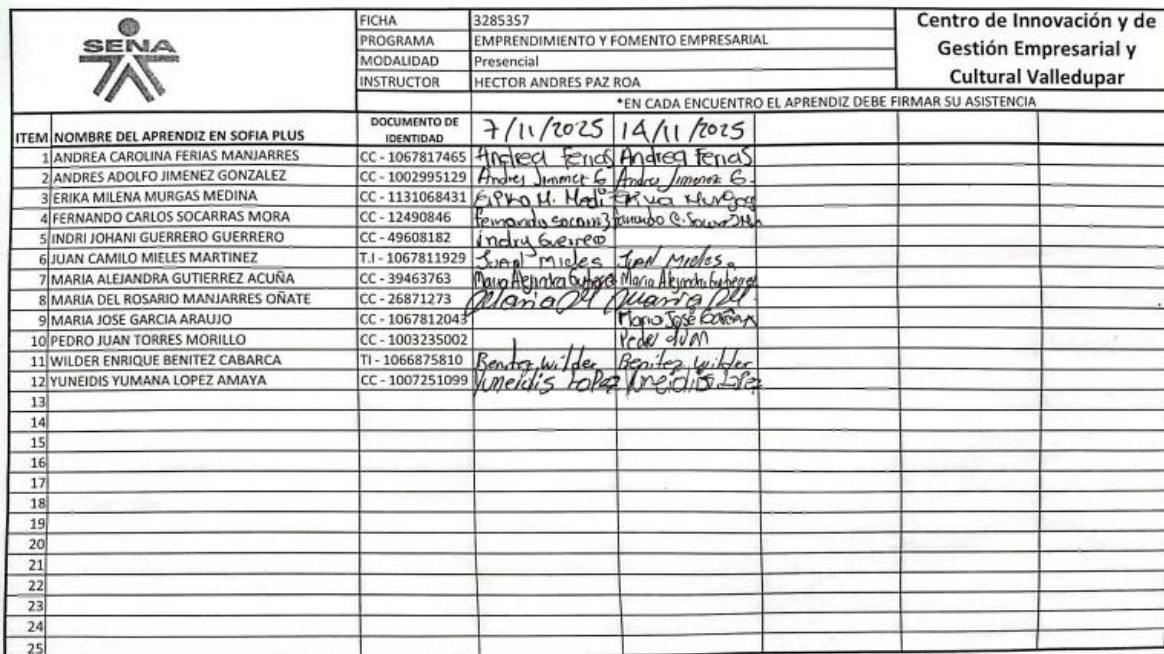 SENA
FICHA 3285357
PROGRAMA EMPRENDIMIENTO Y FOMENTO EMPRESARIAL
MODALIDAD Presencial
INSTRUCTOR HECTOR ANDRES PAZ ROA
Centro de Innovación y de
Gestión Empresarial y
Cultural Valledupar
*EN CADA ENCUENTRO EL APRENDIZ DEBE FIRMAR SU ASISTENCIA
ITEM NOMBRE DEL APRENDIZ EN SOFIA PLUS DOCUMENTO DE IDENTIDAD 7/11/2025 14/11/2025
1 ANDREA CAROLINA FERIAS MANJARRES CC - 1067817465 Andrea Ferias Andrea Ferias
2 ANDRES ADOLFO JIMENEZ GONZALEZ CC - 1002995129 Andres Jimenez G Andres Jimenez G.
3 ERIKA MILENA MURGAS MEDINA CC - 1131068431 Erika M. Medi Erika Murgas
4 FERNANDO CARLOS SOCARRAS MORA CC - 12490846 Fernando Fernando C.
5 INDRI JOHANI GUERRERO GUERRERO CC - 49608182 indry Guerrero
6 JUAN CAMILO MIELES MARTINEZ T.I - 1067811929 Juan Mieles Juan Mieles
7 MARIA ALEJANDRA GUTIERREZ ACUÑA CC - 39463763 Maria Alejandra Gutierrez Maria Alejandra Gutierrez
8 MARIA DEL ROSARIO MANJARRES OÑATE CC - 26871273 Maria Maria
9 MARIA JOSE GARCIA ARAUJO CC - 1067812043 Maria José Garcia
10 PEDRO JUAN TORRES MORILLO CC - 1003235002 Pedro
11 WILDER ENRIQUE BENITEZ CABARCA TI - 1066875810 Benitez wilder Benitez wilder
12 YUNEIDIS YUMANA LOPEZ AMAYA CC - 1007251099 Yuneidis Lopez Yuneidis Lopez
13
14
15
16
17
18
19
20
21
22
23
24
25